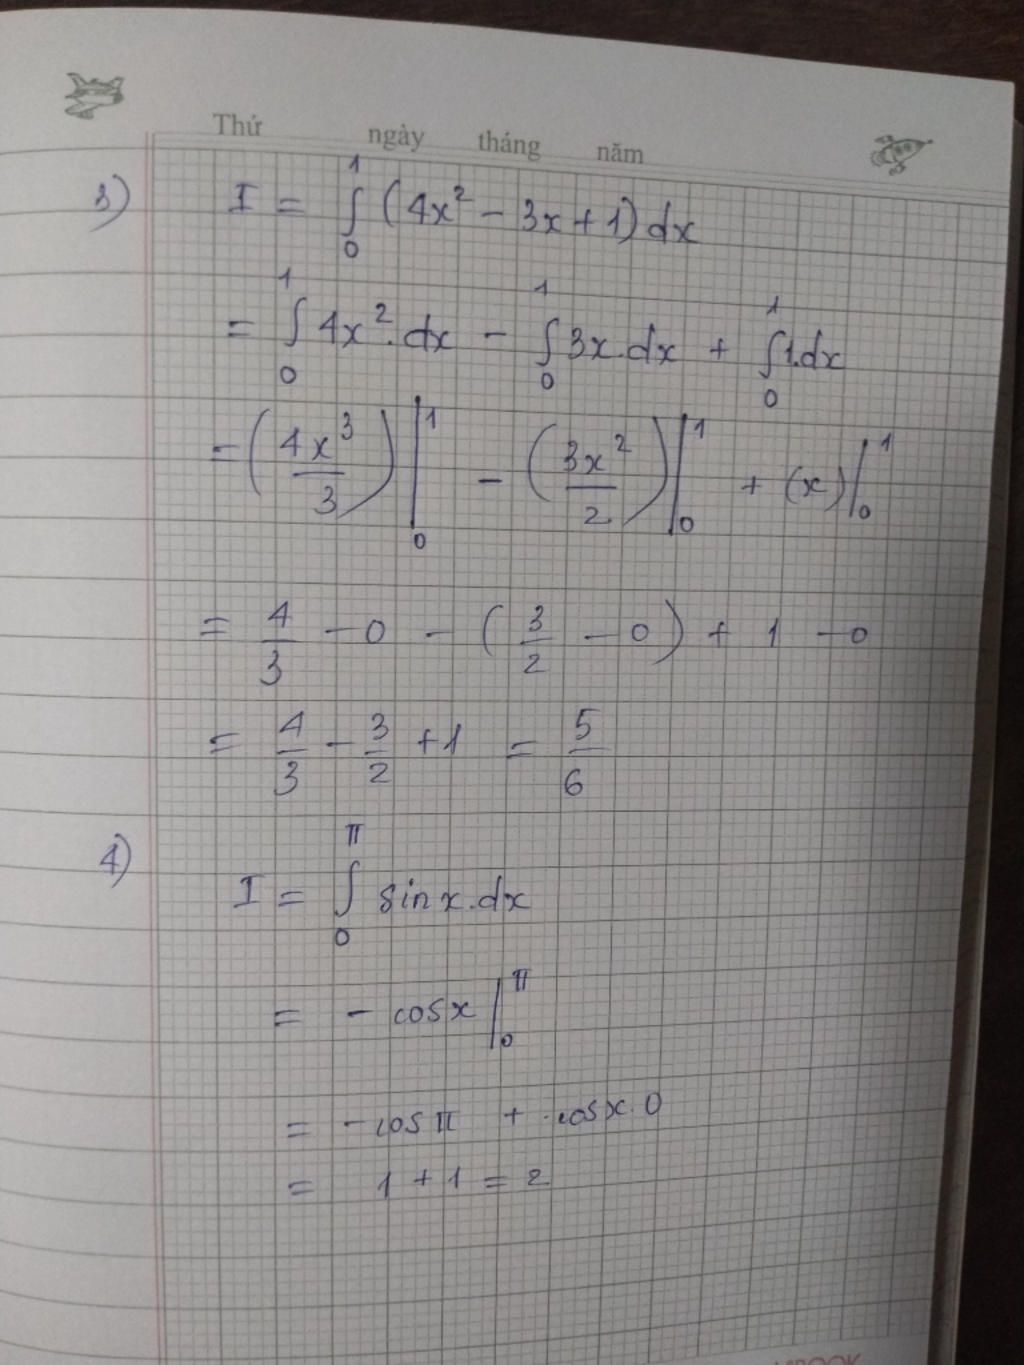 Thứ ngày tháng năm
3) I = ∫₀¹ (4x² − 3x + 1) dx
= ∫₀¹ 4x².dx − ∫₀¹ 3x.dx + ∫₀¹ 1.dx
= (4x³/3)|₀¹ − (3x²/2)|₀¹ + (x)|₀¹
= 4/3 − 0 − (3/2 − 0) + 1 − 0
= 4/3 − 3/2 + 1 = 5/6
4) I = ∫₀^π sin x.dx
= − cos x |₀^π
= − cos π + cos x.0
= 1 + 1 = 2